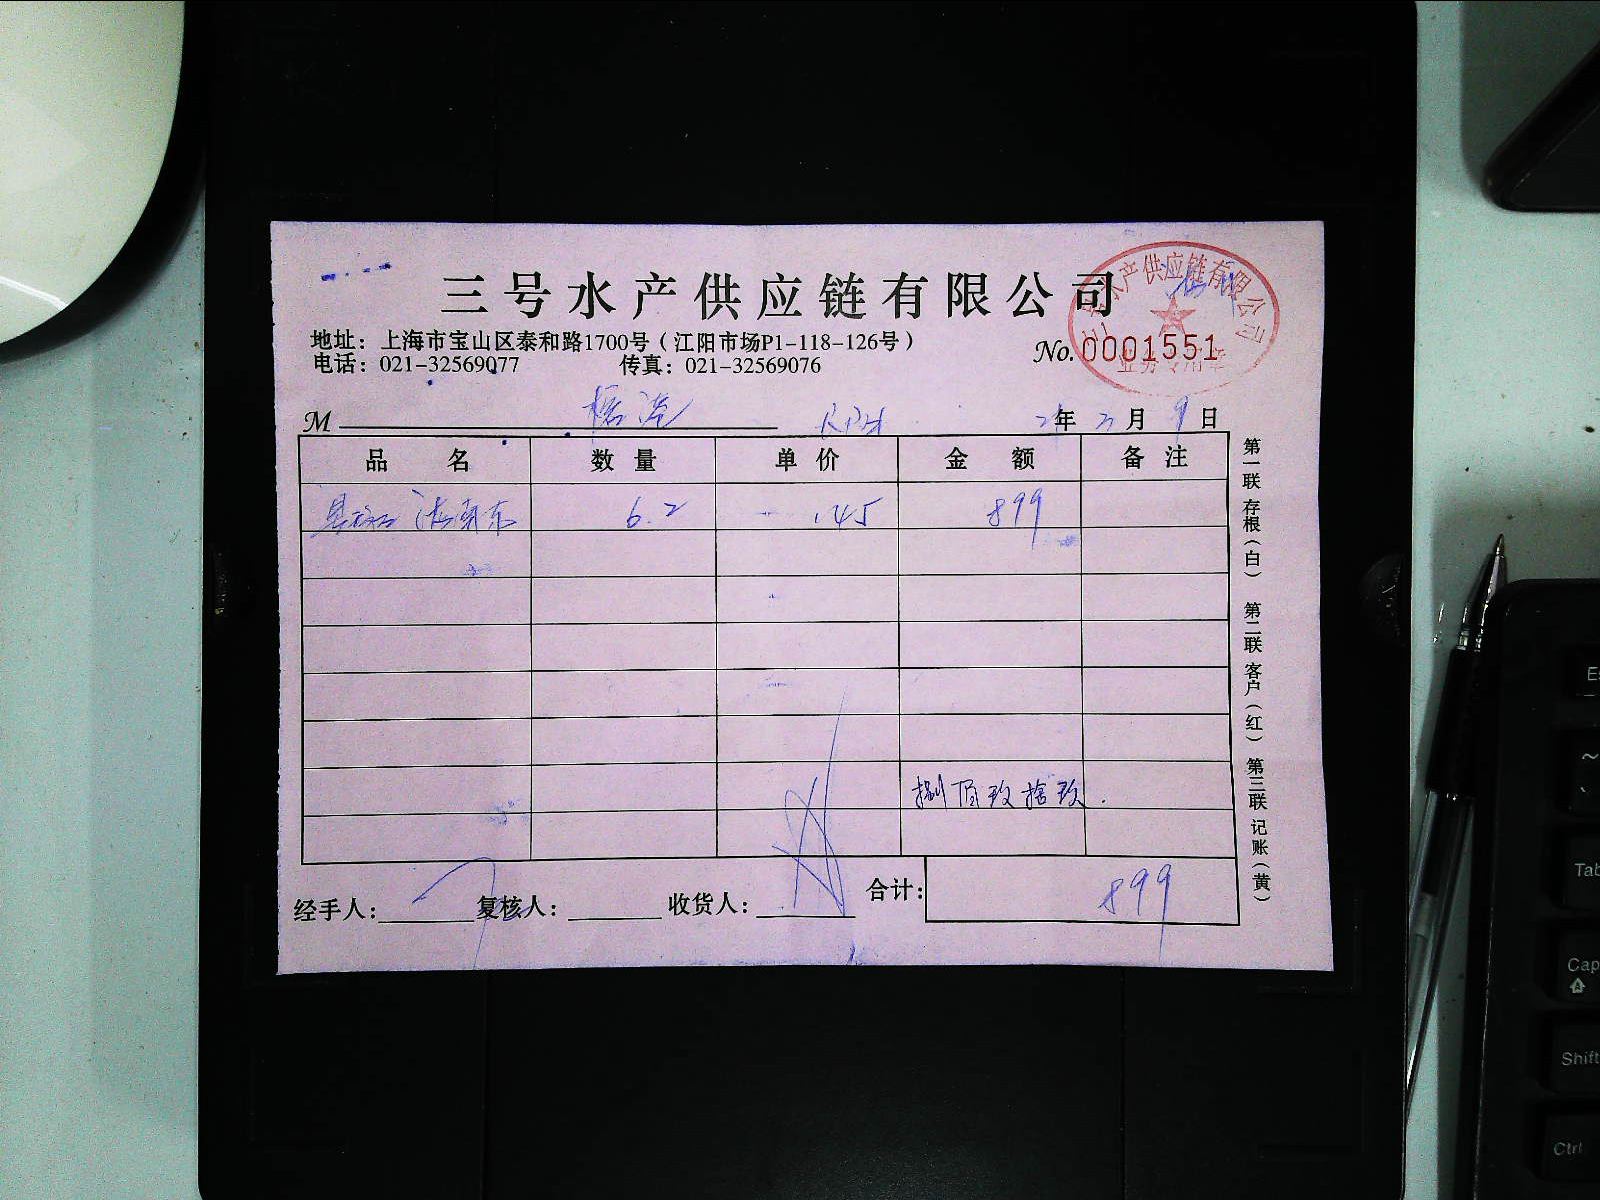 三号水产供应链有限公司
水产供应链有限公司
业务专用章
地址：上海市宝山区泰和路1700号（江阳市场P1-118-126号）
No.0001551
电话：021-32569077 传真：021-32569076
M 年 月 9日
品名 数量 单价 金额 备注
6.2 145 899
捌佰玖拾玖.
经手人： 复核人： 收货人： 合计： 899
第一联 存根（白） 第二联 客户（红） 第三联 记账（黄）
Tab
Cap
Shift
Ctrl